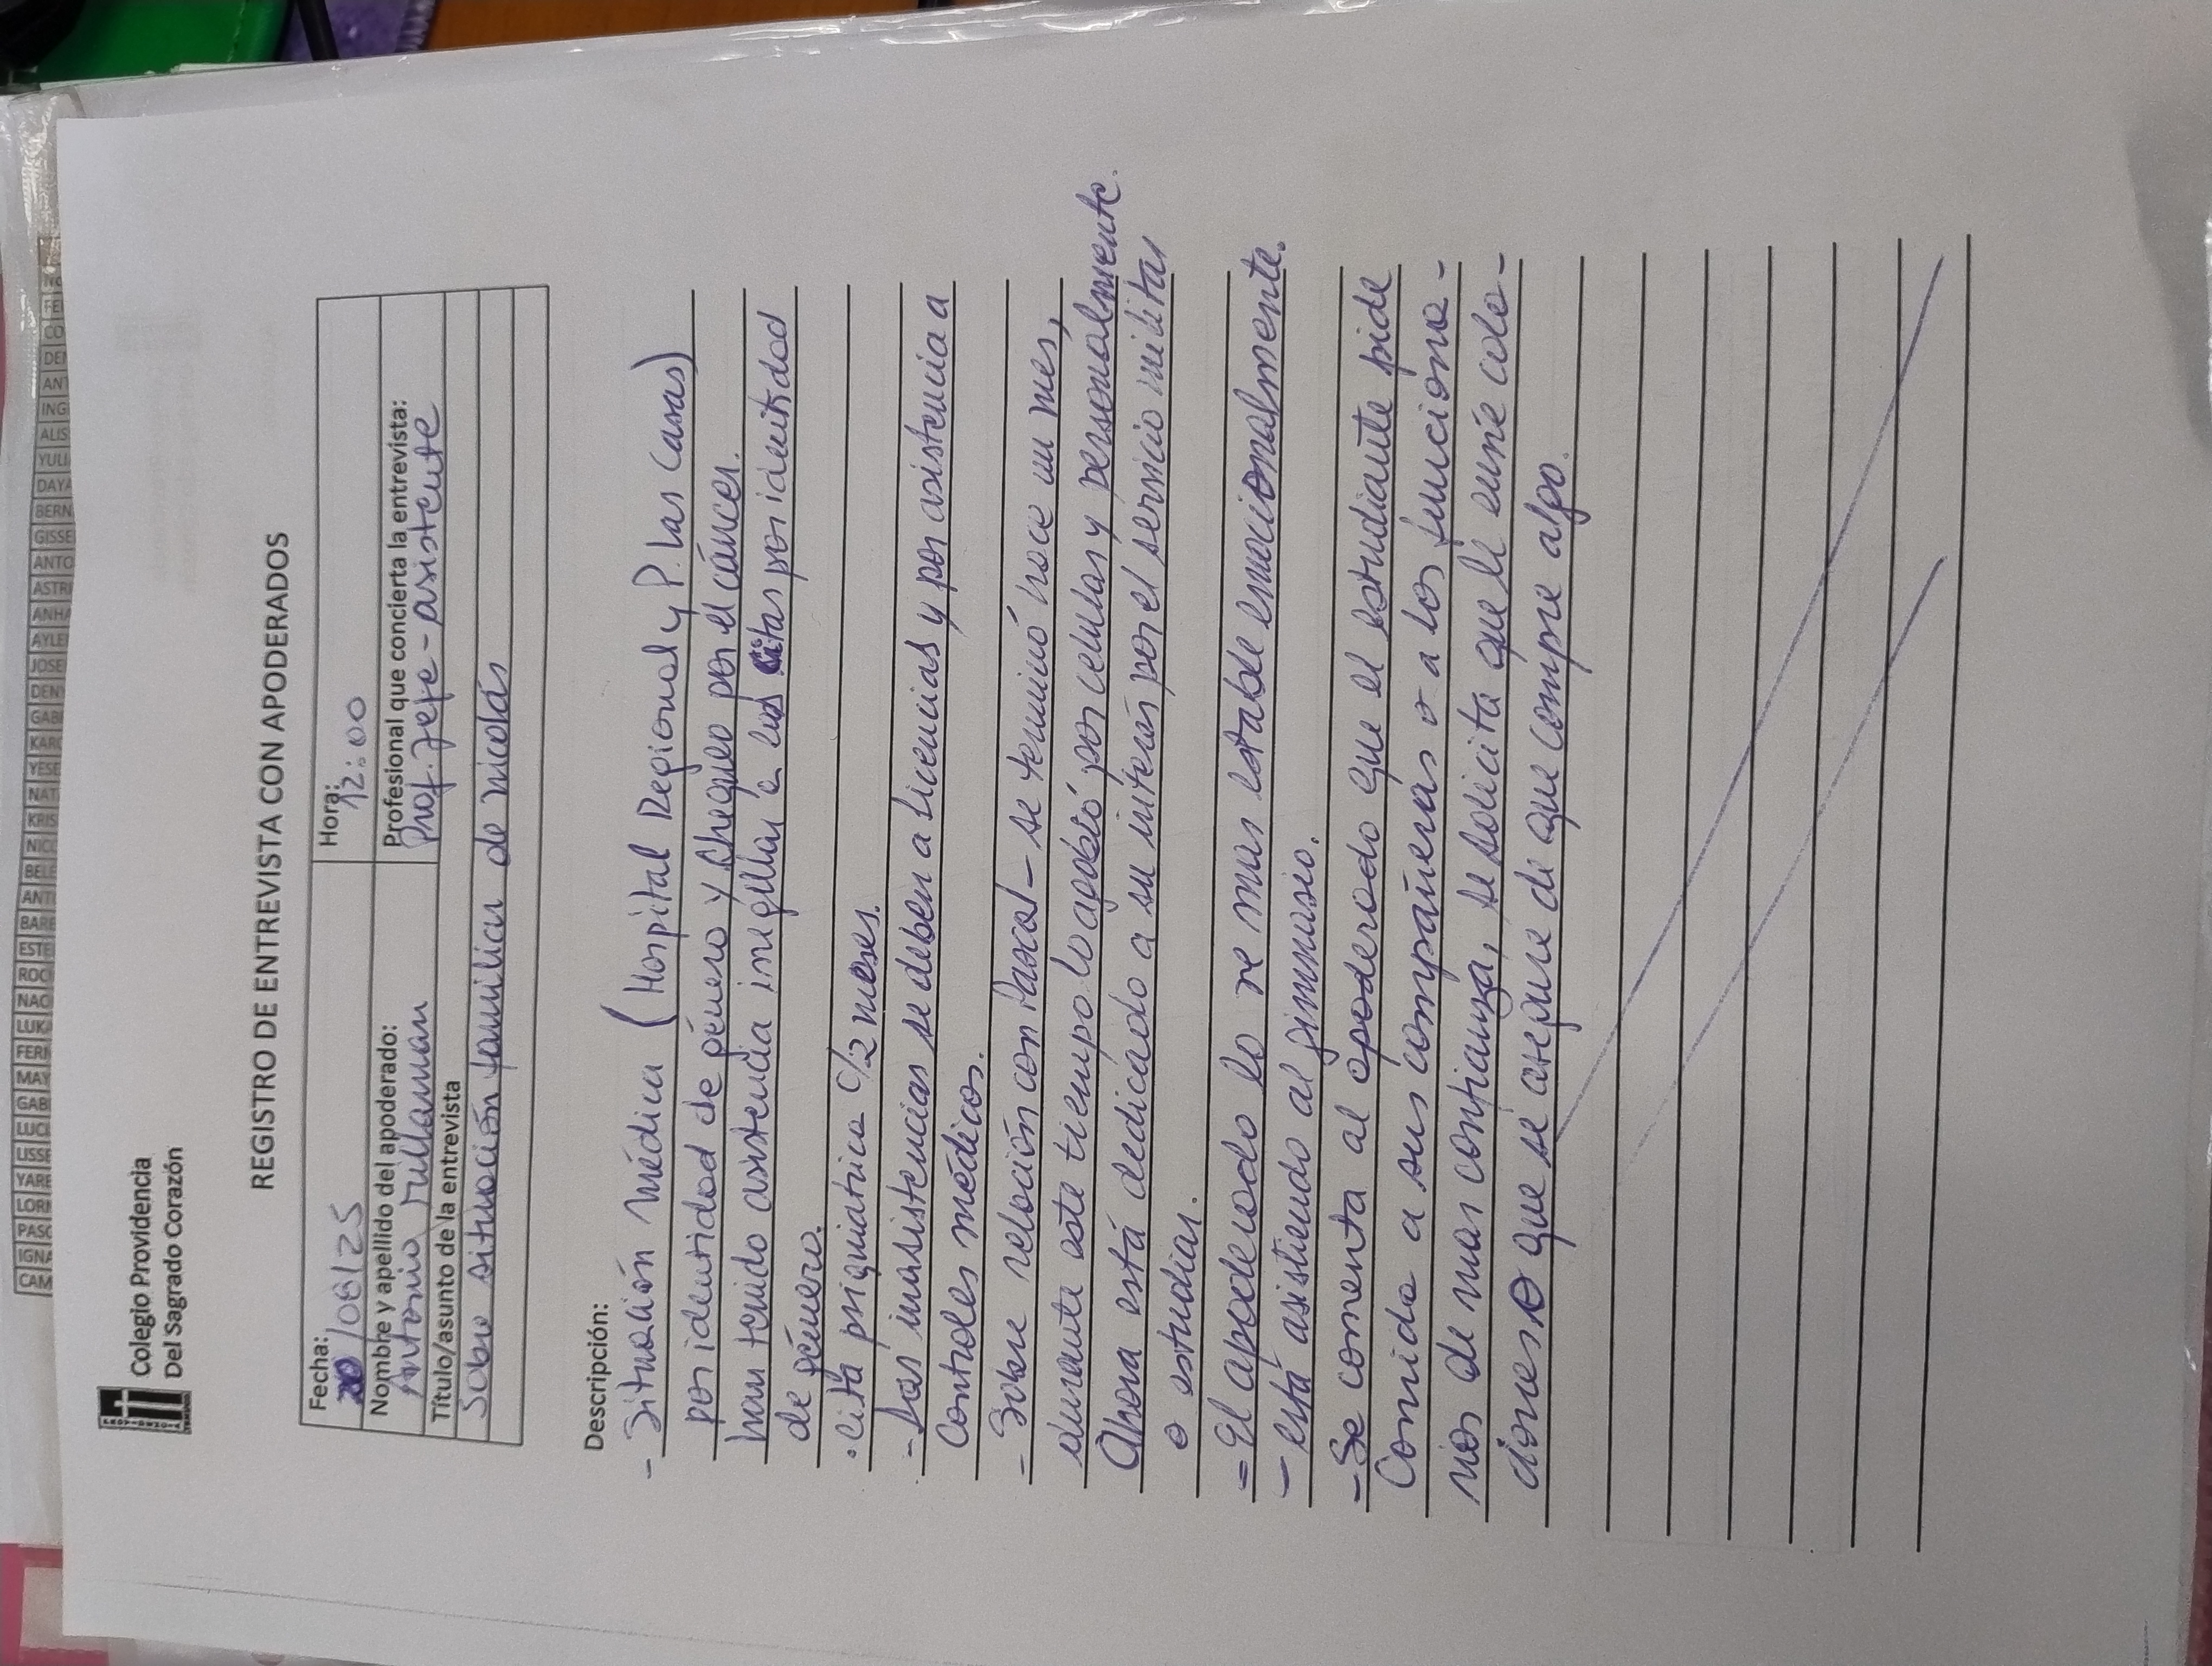 Colegio Providencia
Del Sagrado Corazón
REGISTRO DE ENTREVISTA CON APODERADOS
Fecha: 20/08/25
Hora: 12:00
Nombre y apellido del apoderado:
Antonio
Profesional que concierta la entrevista:
Prof. Jefe - asistente
Título/asunto de la entrevista
Sobre situación familiar de nicolás
Descripción:
- Situación médica (Hospital Regional y P. las Casas)
por identidad de género y chequeo por el cáncer.
han tenido asistencia irregular a las citas por identidad
de género.
• Cita psiquiatrica c/2 meses.
- Las inasistencias se deben a licencias y por asistencia a
Controles médicos.
- Sobre relación con Pascal - se terminó hace un mes,
durante este tiempo lo agobió por celular y personalmente.
Ahora está dedicado a su interés por el servicio militar
o estudiar.
- El apoderado lo ve mas estable emocionalmente.
- está asistiendo al gimnasio.
- Se comenta al apoderado que el estudiante pide
Comida a sus compañeras o a los funciona-
rios de mas confianza, se solicita que le envíe cola-
ciones o que se asegure de que compre algo.
FER
CO
DEN
ANT
ING
ALIS
YULI
DAYA
BERN
GISSE
ANTO
ASTRI
ANHA
AYLE
JOSE
DENY
GABR
KARO
YESE
NAT
KRIS
NICO
BELE
ANTO
BARB
ESTE
ROC
NAC
LUKA
FERN
MAY
GAB
LUCI
LISSE
YARE
LORN
PASC
IGNA
CAM